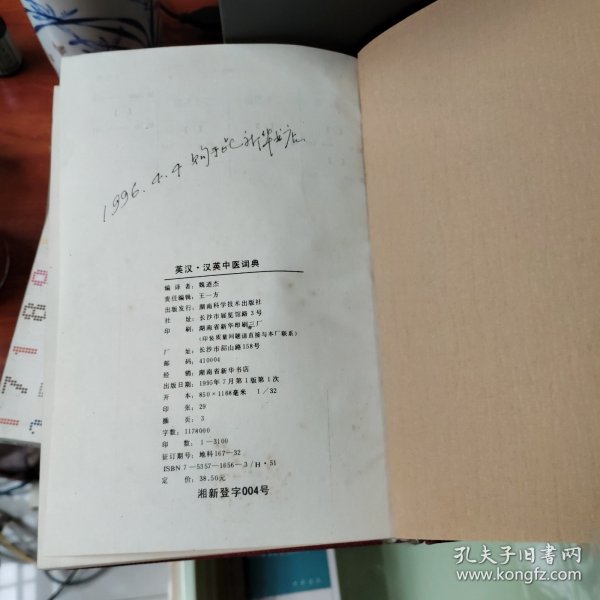 1996.4.4 购于 新华书店
英汉·汉英中医词典
编译者：魏迺杰
责任编辑：王一方
出版发行：湖南科学技术出版社
社 址：长沙市展览馆路3号
印 刷：湖南省新华印刷三厂
（印装质量问题请直接与本厂联系）
厂 址：长沙市韶山路158号
邮 码：410004
经 销：湖南省新华书店
出版日期：1995年7月第1版第1次
开 本：850×1168毫米 1/32
印 张：29
插 页：3
字数：1178000
印 数：1—3100
征订期号：地科167—32
ISBN 7—5357—1656—3/H·51
定 价：38.50元
湘新登字004号
孔夫子旧书网
www.kongfz.com